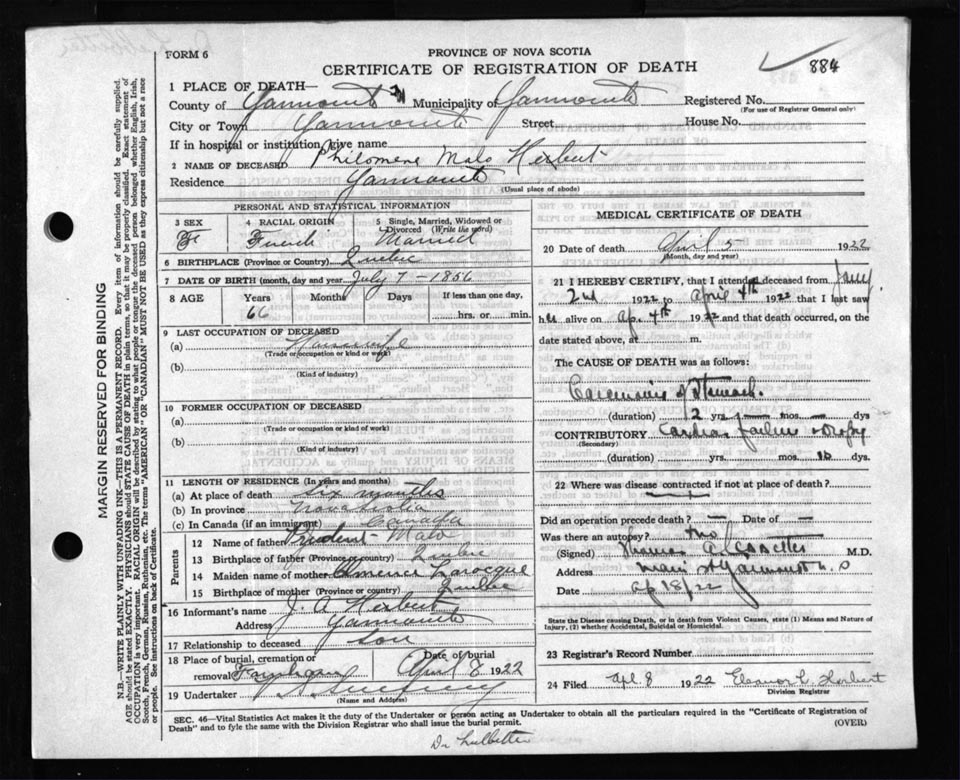 FORM 6
PROVINCE OF NOVA SCOTIA
CERTIFICATE OF REGISTRATION OF DEATH
884
1 PLACE OF DEATH—
County of Yarmouth Municipality of Yarmouth Registered No.
(For use of Registrar General only)
City or Town Yarmouth Street House No.
If in hospital or institution, give name
2 NAME OF DECEASED Philomene Malo Herbert
Residence Yarmouth
(Usual place of abode)
PERSONAL AND STATISTICAL INFORMATION
3 SEX 4 RACIAL ORIGIN 5 Single, Married, Widowed or Divorced (Write the word)
F French Married
6 BIRTHPLACE (Province or Country) Quebec
7 DATE OF BIRTH (month, day and year) July 7 - 1856
8 AGE Years Months Days If less than one day,
66 hrs. or min.
9 LAST OCCUPATION OF DECEASED
(a) Housewife
(Trade or occupation or kind or work)
(b)
(Kind of industry)
10 FORMER OCCUPATION OF DECEASED
(a)
(Trade or occupation or kind or work)
(b)
(Kind of industry)
11 LENGTH OF RESIDENCE (In years and months)
(a) At place of death six months
(b) In province Nova Scotia
(c) In Canada (if an immigrant) Canada
Parents
12 Name of father Prudent Malo
13 Birthplace of father (Province or country) Quebec
14 Maiden name of mother Larocque
15 Birthplace of mother (Province or country) Quebec
16 Informant's name J. A. Herbert
Address Yarmouth
17 Relationship to deceased son
18 Place of burial, cremation or removal Date of burial
April 8 1922
19 Undertaker
(Name and Address)
MEDICAL CERTIFICATE OF DEATH
20 Date of death April 5 1922
(Month, day and year)
21 I HEREBY CERTIFY, that I attended deceased from Jany
2nd 1922 to April 4th 1922 that I last saw
her alive on Ap. 4th 1922 and that death occurred, on the
date stated above, at m.
The CAUSE OF DEATH was as follows:
Carcinoma of Stomach.
(duration) 2 yrs. — mos. — dys
CONTRIBUTORY Cardiac failure & Dropsy
(Secondary)
(duration) yrs. mos. 10 dys.
22 Where was disease contracted if not at place of death?
Did an operation precede death? — Date of —
Was there an autopsy? no
(Signed) M.D.
Address Main St Yarmouth N. S
Date Ap 18/22
State the Disease causing Death, or in death from Violent Causes, state (1) Means and Nature of Injury, (2) whether Accidental, Suicidal or Homicidal.
23 Registrar's Record Number
24 Filed Apl 8 1922 Eleanor C. Herbert
Division Registrar
SEC. 46—Vital Statistics Act makes it the duty of the Undertaker or person acting as Undertaker to obtain all the particulars required in the "Certificate of Registration of
Death" and to fyle the same with the Division Registrar who shall issue the burial permit.
(OVER)
MARGIN RESERVED FOR BINDING
N.B.—WRITE PLAINLY WITH UNFADING INK—THIS IS A PERMANENT RECORD. Every item of information should be carefully supplied.
AGE should be stated EXACTLY. PHYSICIANS should STATE CAUSE OF DEATH in plain terms, so that it may be properly classified. Exact statement of
OCCUPATION is very important. RACIAL ORIGIN will be described by stating to what people or tongue the deceased person belonged whether English, Irish,
Scotch, French, German, Russian, Ruthenian, etc. The terms "AMERICAN" or "CANADIAN" MUST NOT BE USED as they express citizenship but not a race
or people. See instructions on back of Certificate.